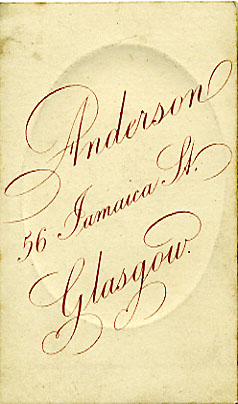 Anderson
56 Jamaica St.
Glasgow.